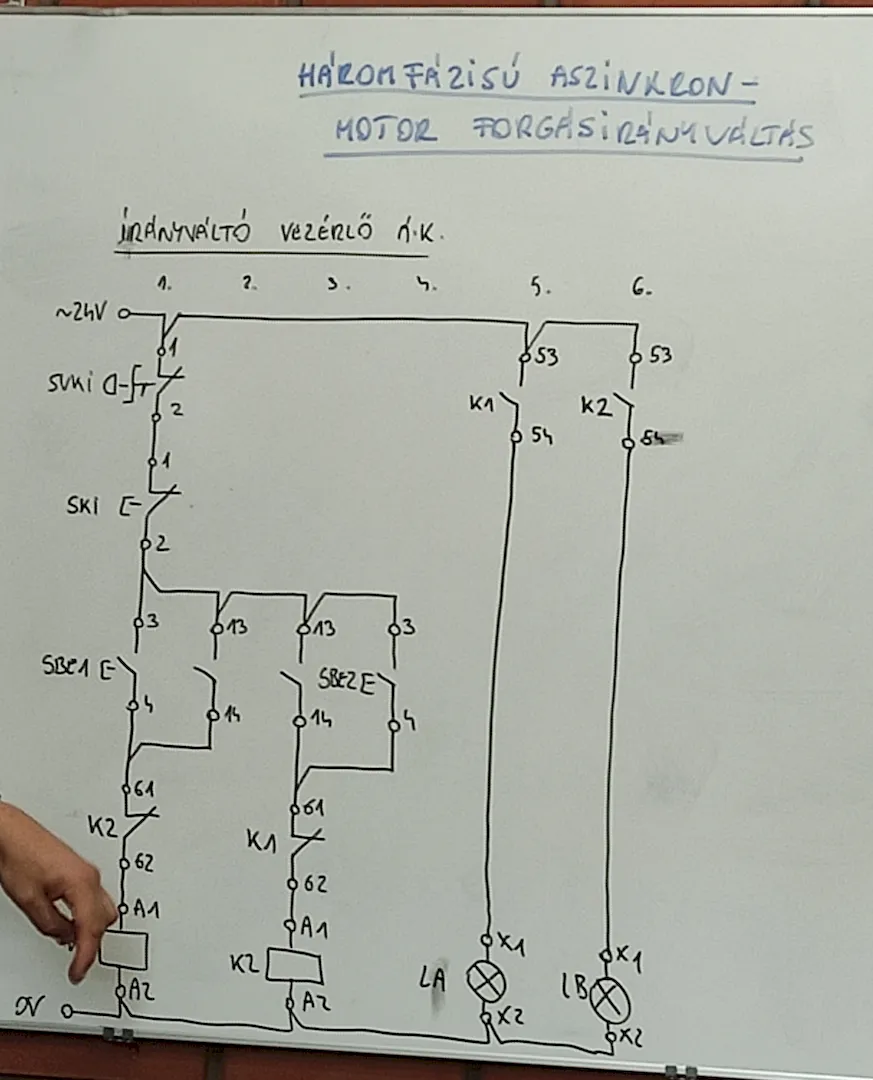 HÁROMFÁZISÚ ASZINKRON-
MOTOR FORGÁSIRÁNYVÁLTÁS
IRÁNYVÁLTÓ VEZÉRLŐ Á.K.
1. 2. 3. 4. 5. 6.
~24V
1
53 53
SVKI
2
K1 K2
54 54
1
SKI
2
3 13 13 3
SBE1 SBE2
4 14 14 4
61 61
K2 K1
62 62
A1 A1
X1 X1
K2 LA LB
A2 A2
0V
X2 X2